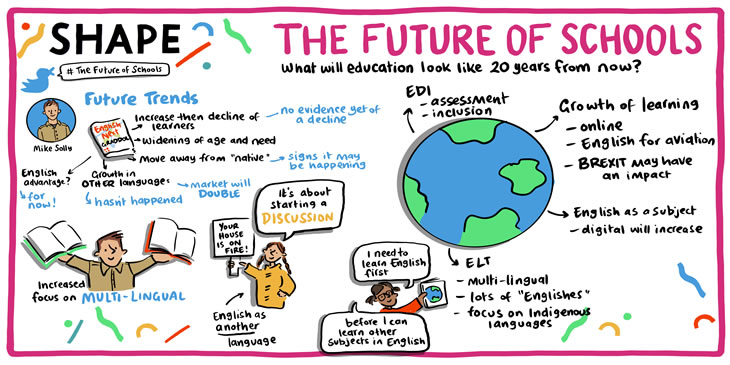 SHAPE
# The Future of Schools
THE FUTURE OF SCHOOLS
What will education look like 20 years from now?
Mike Solly
Future Trends
English
Next
GRADDOL
Increase then decline of
learners
no evidence yet of
a decline
Widening of age and need
Move away from "native"
signs it may
be happening
English
advantage?
for
now!
Growth in
OTHER languages
hasn't happened
market will
DOUBLE
Increased
focus on MULTI-LINGUAL
YOUR
HOUSE
IS ON
FIRE!
It's about
starting a
DISCUSSION
English as
another
language
EDI
- assessment
- inclusion
Growth of learning
- online
- English for aviation
- BREXIT may have
an impact
English as a subject
- digital will increase
ELT
- multi-lingual
- lots of "Englishes"
- focus on Indigenous
languages
I need to
learn English
first
before I can
learn other
subjects in English